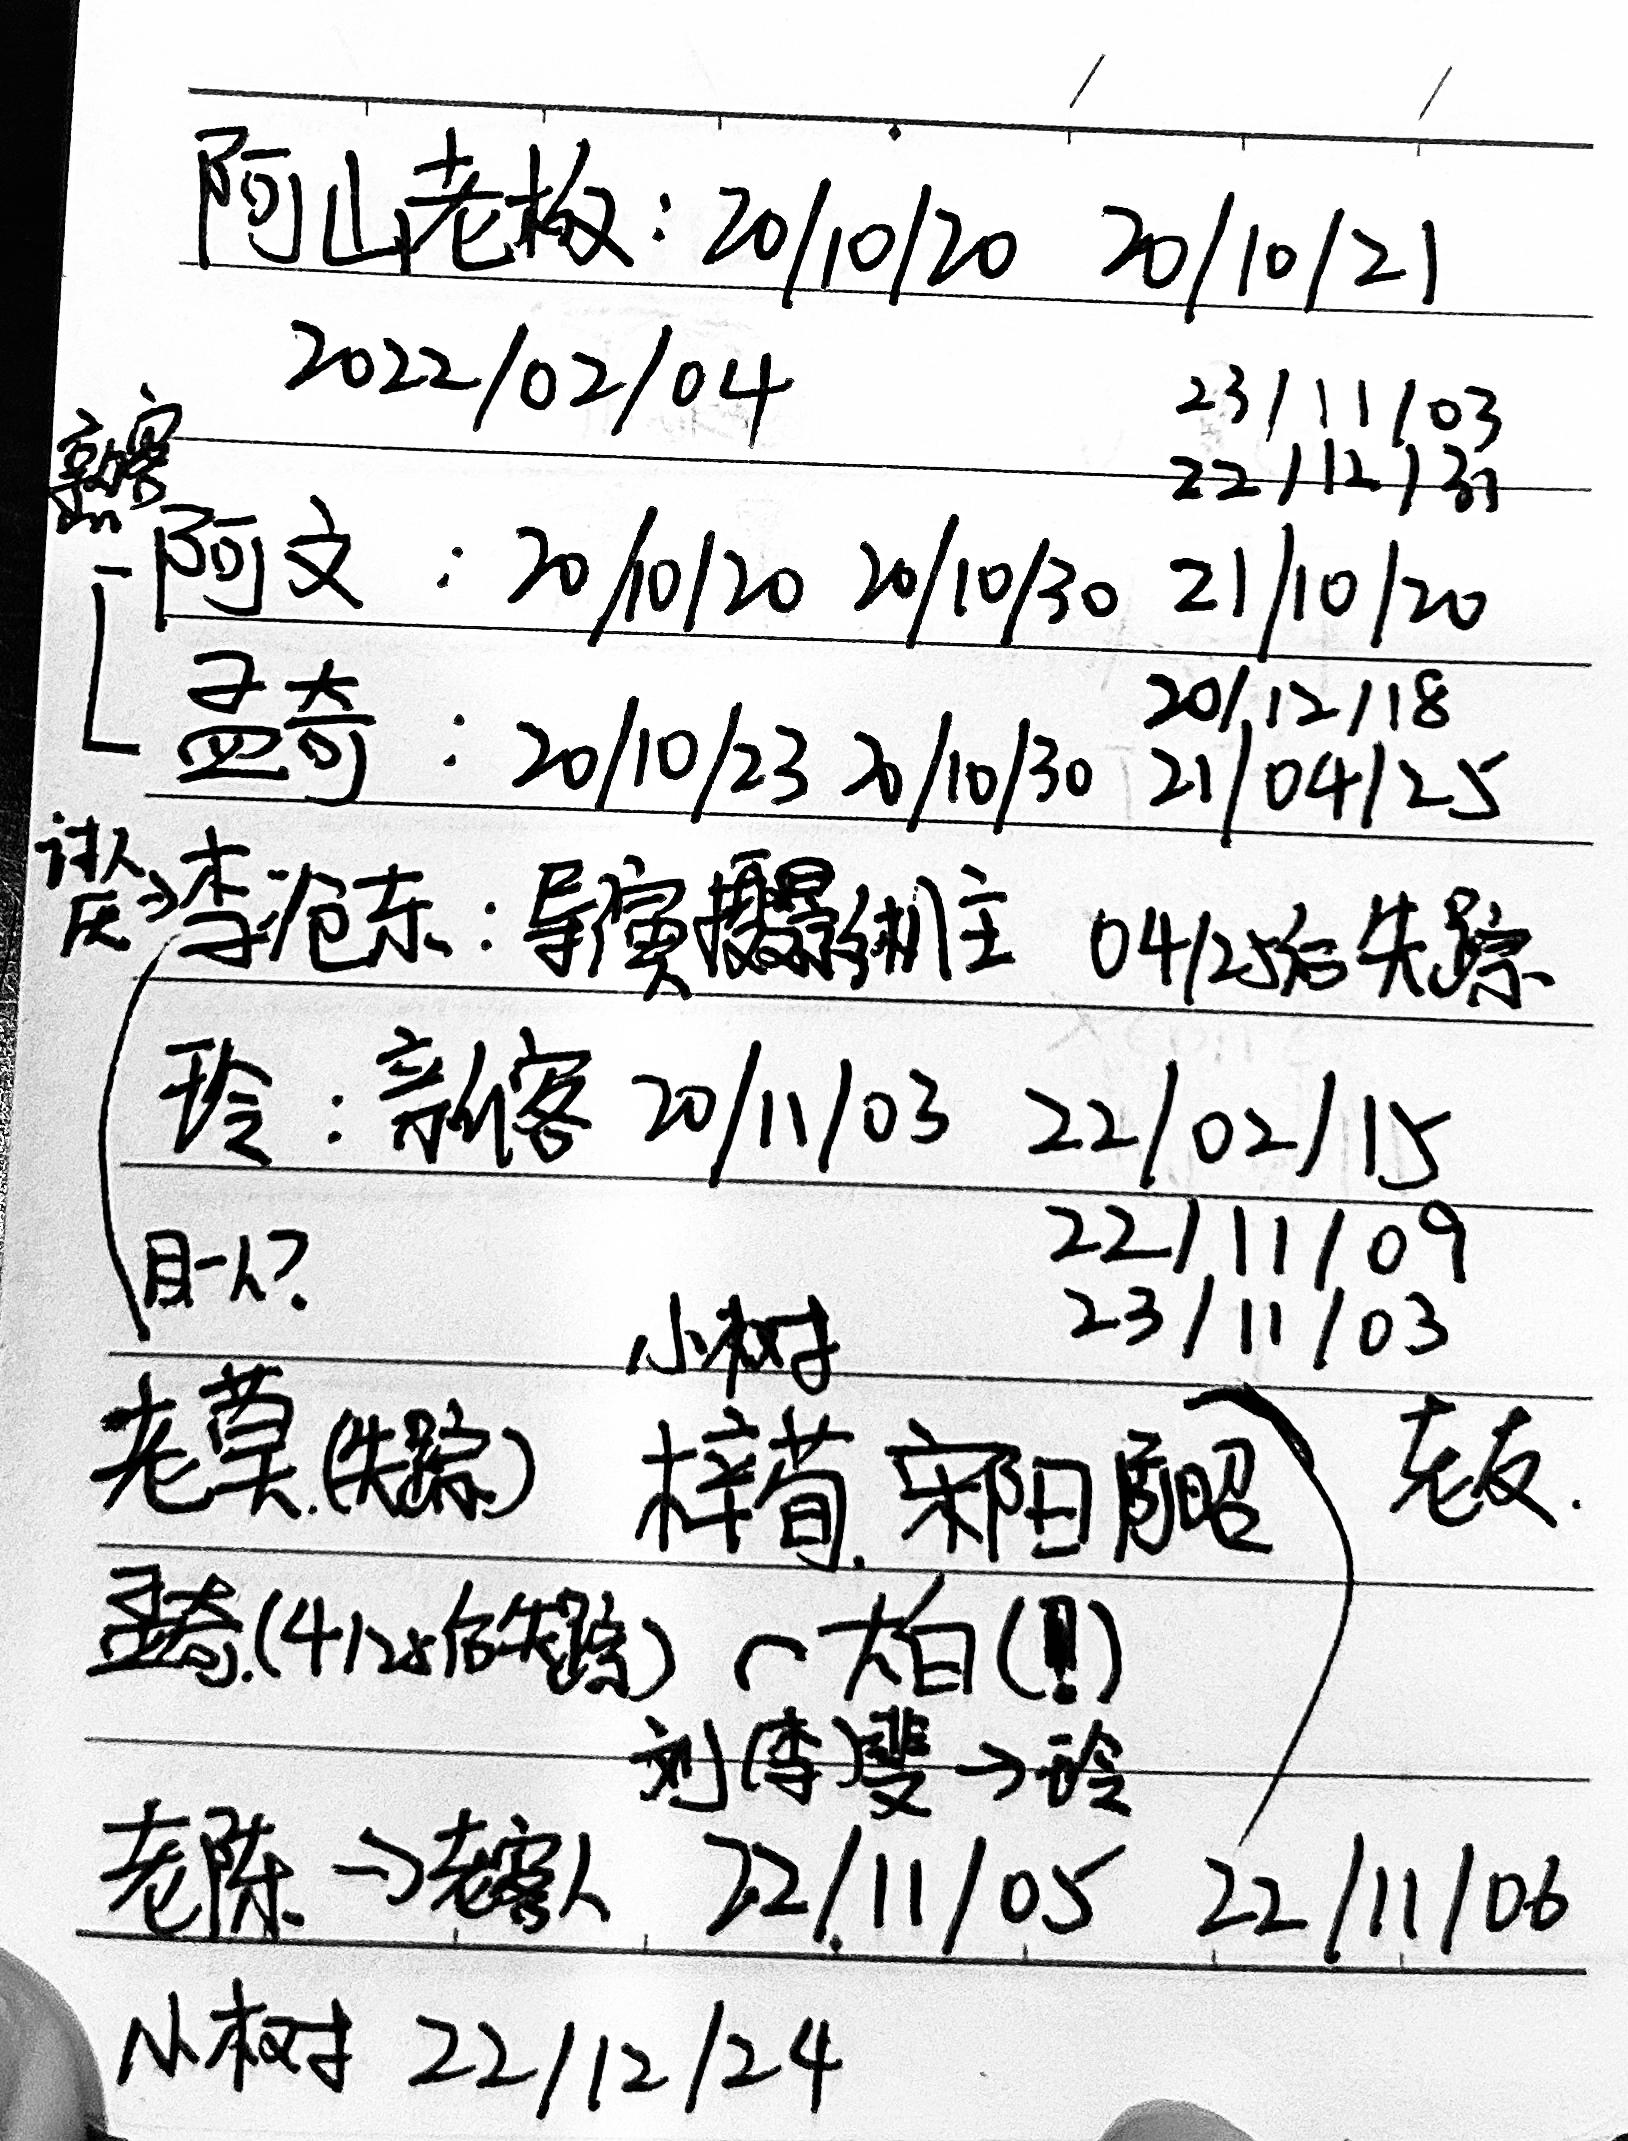 阿山老板：20/10/20 20/10/21
2022/02/04
23/11/03
22/12/31
新客
阿文：20/10/20 20/10/30 21/10/20
20/12/18
孟奇：20/10/23 20/10/30 21/04/25
讨人厌→李沧东：导演摄影机主 04/25后失踪
玲：新客 20/11/03 22/02/15
22/11/09
同一人？
23/11/03
小树
老莫.(失踪) 梓荀.宋阳 陈昭 老友.
孟奇.(4/25后失踪) 大白(!)
刘(李)斐→玲
老陈→老客人 22/11/05 22/11/06
小树 22/12/24